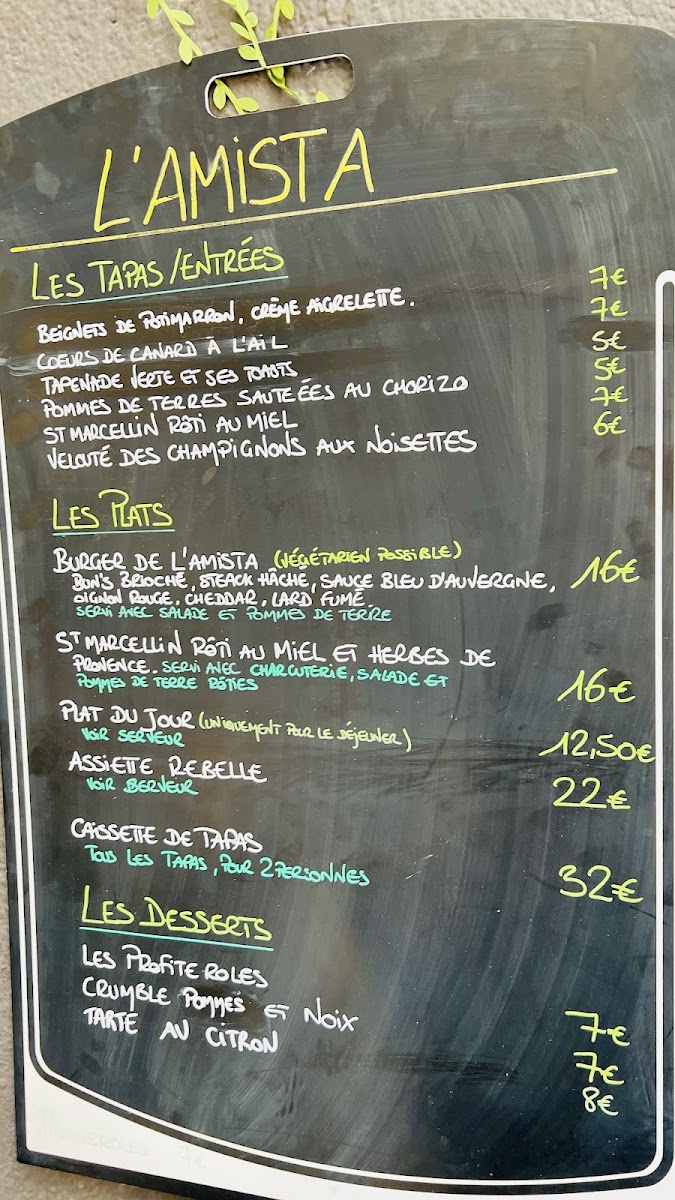 L'AMISTA
LES TAPAS/ENTRÉES
BEIGNETS DE POTIMARRON, CRÈME AIGRELETTE. 7€
COEURS DE CANARD À L'AIL 7€
TAPENADE VERTE ET SES TOASTS 5€
POMMES DE TERRES SAUTEÉES AU CHORIZO 5€
ST MARCELLIN RÔTI AU MIEL 7€
VELOUTÉ DES CHAMPIGNONS AUX NOISETTES 6€
LES PLATS
BURGER DE L'AMISTA (VÉGÉTARIEN POSSIBLE) 16€
BUN'S BRIOCHÉ, STEACK HÂCHÉ, SAUCE BLEU D'AUVERGNE,
OIGNON ROUGE, CHEDDAR, LARD FUMÉ.
SERVI AVEC SALADE ET POMMES DE TERRE
ST MARCELLIN RÔTI AU MIEL ET HERBES DE
PROVENCE. SERVI AVEC CHARCUTERIE, SALADE ET
POMMES DE TERRE RÔTIES 16€
PLAT DU JOUR (UNIQUEMENT POUR LE DÉJEUNER) 12,50€
VOIR SERVEUR
ASSIETTE REBELLE 22€
VOIR SERVEUR
CAISSETTE DE TAPAS
TOUS LES TAPAS, POUR 2 PERSONNES 32€
LES DESSERTS
LES PROFITEROLES 7€
CRUMBLE POMMES ET NOIX 7€
TARTE AU CITRON 8€